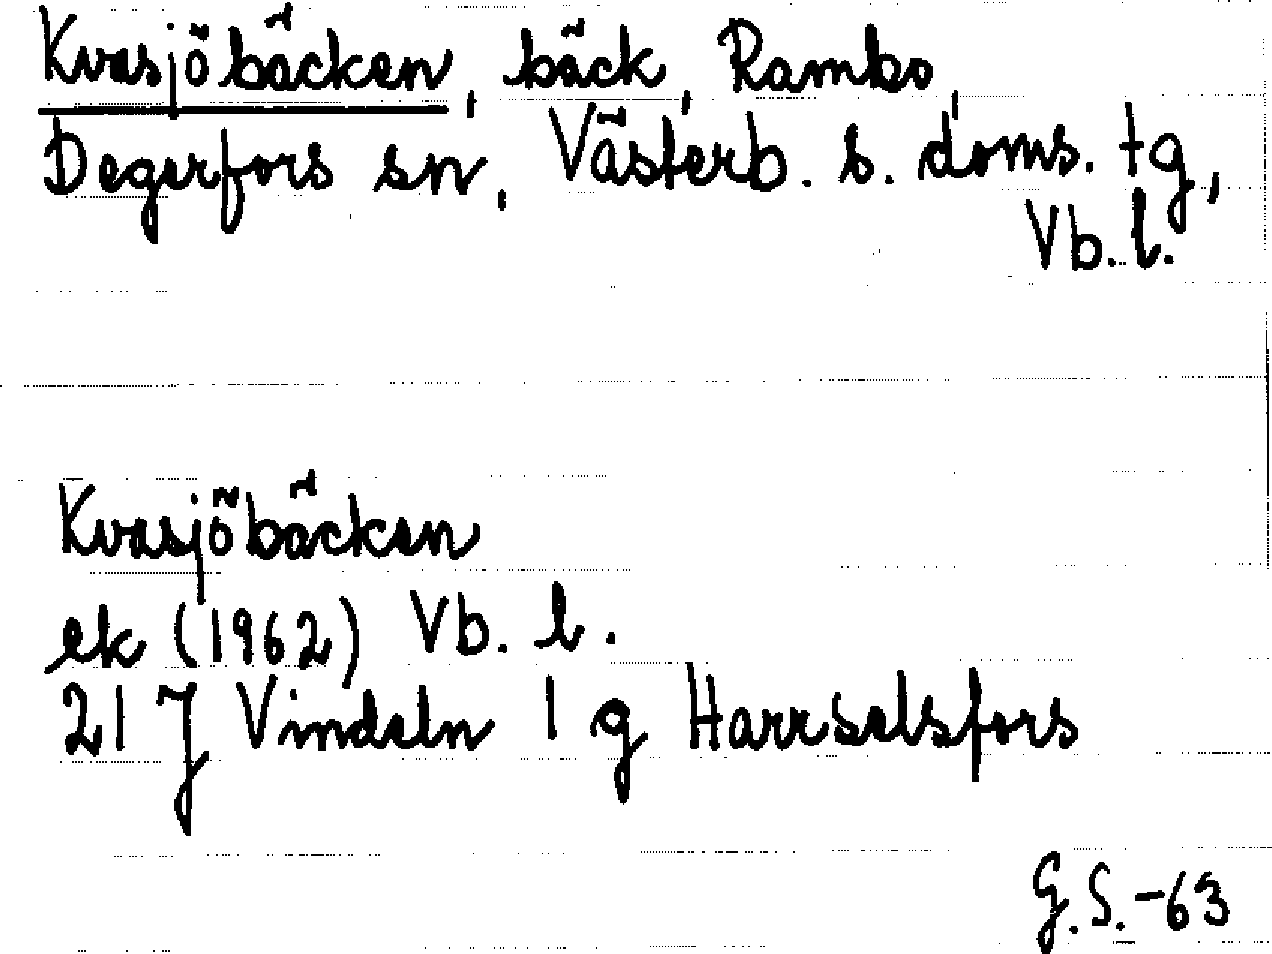 Kvasjöbäcken, bäck, Rambo,
Degerfors sn, Västerb. s. doms. tg,
Vb. l.
Kvasjöbäcken
ek (1962) Vb. l.
21 J Vindeln 1 g Harrselsfors
G. S. -63